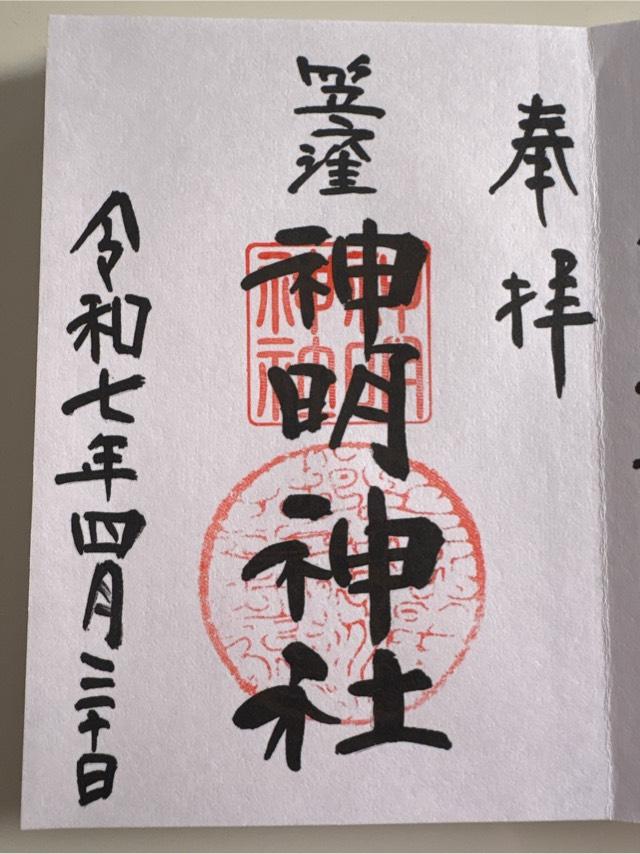 奉拝
笠窪
神明神社
神明
神社
令和七年四月三十日